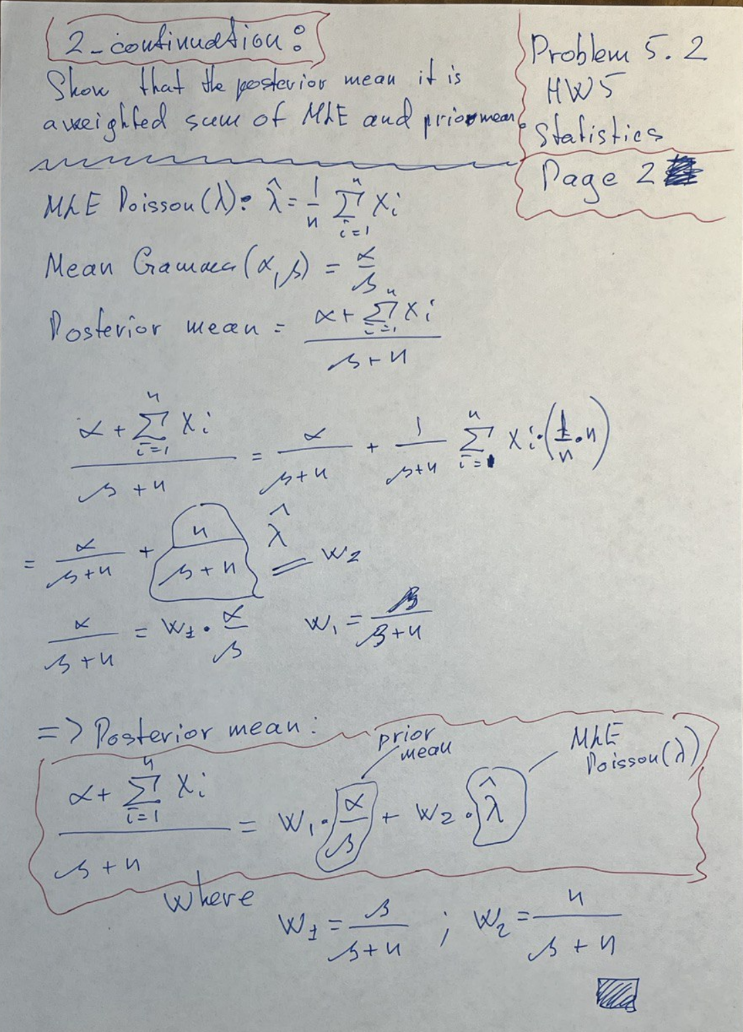 2-continuation:
Show that the posterior mean it is
a weighted sum of MLE and prior mean
Problem 5.2
HW5
Statistics
Page 2
MLE Poisson(λ): λ̂ = 1/n ∑_{i=1}^{n} Xi
Mean Gamma(α,β) = α/β
Posterior mean = (α + ∑_{i=1}^{n} Xi)/(β+n)
(α + ∑_{i=1}^{n} Xi)/(β+n) = α/(β+n) + 1/(β+n) ∑_{i=1}^{n} Xi·(1/n·n)
= α/(β+n) + n/(β+n) λ̂ = w2
α/(β+n) = W1 · α/β   W1 = β/(β+n)
=> Posterior mean:
prior
mean
MLE
Poisson(λ)
(α + ∑_{i=1}^{n} Xi)/(β+n) = W1 · α/β + W2 · λ̂
where
W1 = β/(β+n) ; W2 = n/(β+n)